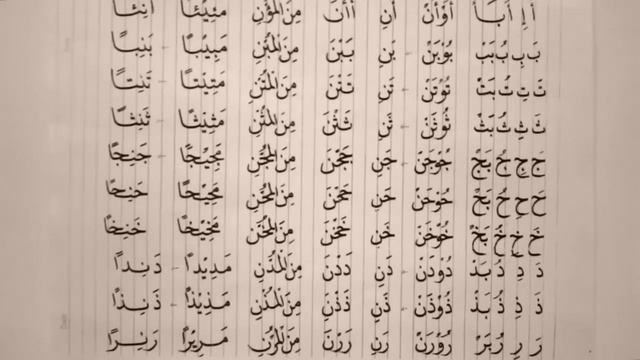 أَ إِ أُ بَأْ أُوْأَنْ أَنِ أَأْنَ مِنَ المُؤْنِ مَئِيْئًا أَنِئًا
بَ بِ بُ بَبْ بُوْبَنْ - بَنِ بَبْنَ مِنَ المُبْنِ مَبِيْبًا - بَنِبًا
تَ تِ تُ بَتْ تُوْتَنْ - تَنِ تَتْنَ مِنَ المُتْنِ مَتِيْتًا - تَنِتًا
ثَ ثِ ثُ بَثْ ثُوْثَنْ - ثَنِ ثَثْنَ مِنَ المُثْنِ مَثِيْثًا - ثَنِثًا
جَ جِ جُ بَجْ جُوْجَنْ - جَنِ جَجْنَ مِنَ المُجْنِ مَجِيْجًا - جَنِجًا
حَ حِ حُ بَحْ حُوْحَنْ - حَنِ حَحْنَ مِنَ المُحْنِ مَحِيْحًا حَنِحًا
خَ خِ خُ بَخْ خُوْخَنْ - خَنِ خَخْنَ مِنَ المُخْنِ مَخِيْخًا خَنِخًا
دَ دِ دُ بَدْ دُوْدَنْ - دَنِ دَدْنَ مِنَ المُدْنِ مَدِيْدًا - دَنِدًا
ذَ ذِ ذُ بَذْ ذُوْذَنْ - ذَنِ ذَذْنَ مِنَ المُذْنِ مَذِيْذًا - ذَنِذًا
رَ رِ رُ بَرْ رُوْرَنْ رَنِ رَرْنَ مِنَ المُرْنِ مَرِيْرًا رَنِرًا